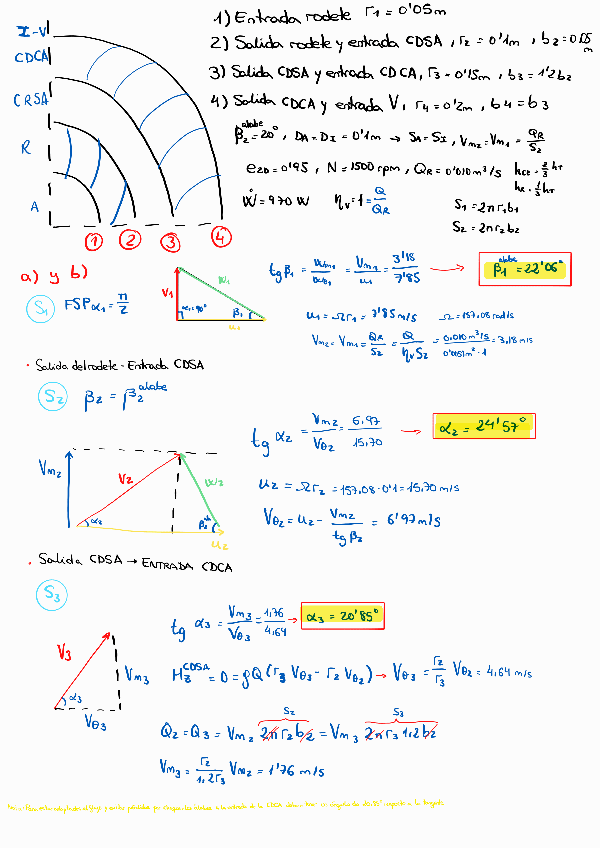 1) Entrada rodete r₁ = 0'05 m
2) Salida rodete y entrada CDSA, r₂ = 0'1m , b₂ = 0'05 m
3) Salida CDSA y entrada CDCA, r₃ = 0'15m , b₃ = 1'2b₂
4) Salida CDCA y entrada V, r₄ = 0'2m , b₄ = b₃
β₂ᵃˡᵃᵇᵉ = 20° , D_A = D_I = 0'1m → S_A = S_I , V_m₂ = V_m₁ = Q_R/S₂
e_2D = 0'95 , N = 1500 rpm , Q_R = 0'010 m³/s h_CE = 2/3 h_T
h_R = 1/3 h_T
Ẇ = 970 W η_v = 1 = Q/Q_R S₁ = 2πr₁b₁
S₂ = 2πr₂b₂
I-V
CDCA
CRSA
R
A
1 2 3 4
a) y b)
S₁ FSP α₁ = π/2
V₁ W₁ α₁=90° β₁ u₁
tg β₁ = W_m₁/W_θ₁ = V_m₁/u₁ = 3'18/7'85 → β₁ᵃˡᵃᵇᵉ = 22'06°
u₁ = Ωr₁ = 7'85 m/s Ω = 157,08 rad/s
V_m₂ = V_m₁ = Q_R/S₂ = Q/(η_v S₂) = 0,010 m³/s / 0'0051m²·1 = 3,18 m/s
· Salida del rodete - Entrada CDSA
S₂ β₂ = β₂ᵃˡᵃᵇᵉ
V_m₂ V₂ W₂ α₂ β₂ u₂
tg α₂ = V_m₂/V_θ₂ = 6,97/15,70 → α₂ = 24'57°
u₂ = Ωr₂ = 157,08·0'1 = 15,70 m/s
V_θ₂ = u₂ - V_m₂/tg β₂ = 6'97 m/s
· Salida CDSA → ENTRADA CDCA
S₃
V₃ V_m₃ α₃ V_θ₃
tg α₃ = V_m₃/V_θ₃ = 1,76/4,64 → α₃ = 20'85°
M_Z^CDSA = 0 = ρQ(r₃ V_θ₃ - r₂ V_θ₂) → V_θ₃ = r₂/r₃ V_θ₂ = 4,64 m/s
S₂ S₃
Q₂ = Q₃ = V_m₂ 2πr₂b₂ = V_m₃ 2πr₃ 1,2b₂
V_m₃ = r₂/1,2r₃ V_m₂ = 1'76 m/s